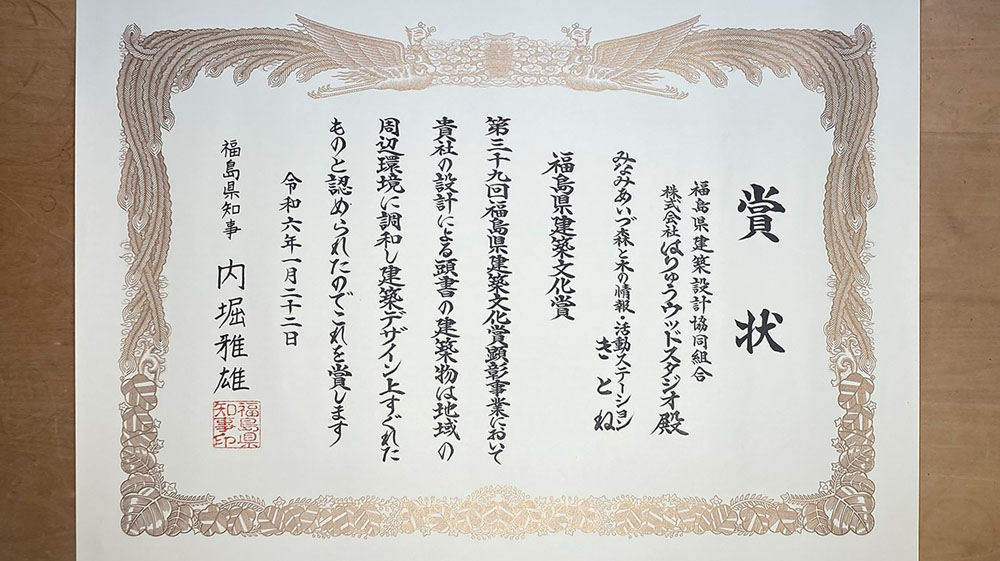 賞状
福島県建築設計協同組合
株式会社はりゅうウッドスタジオ殿
みなみあいづ森と木の情報・活動ステーション
きとね
福島県建築文化賞
第三十九回福島県建築文化賞顕彰事業において
貴社の設計による頭書の建築物は地域の
周辺環境に調和し建築デザイン上すぐれた
ものと認められたのでこれを賞します
令和六年一月二十二日
福島県知事 内堀雅雄
福島県
知事印